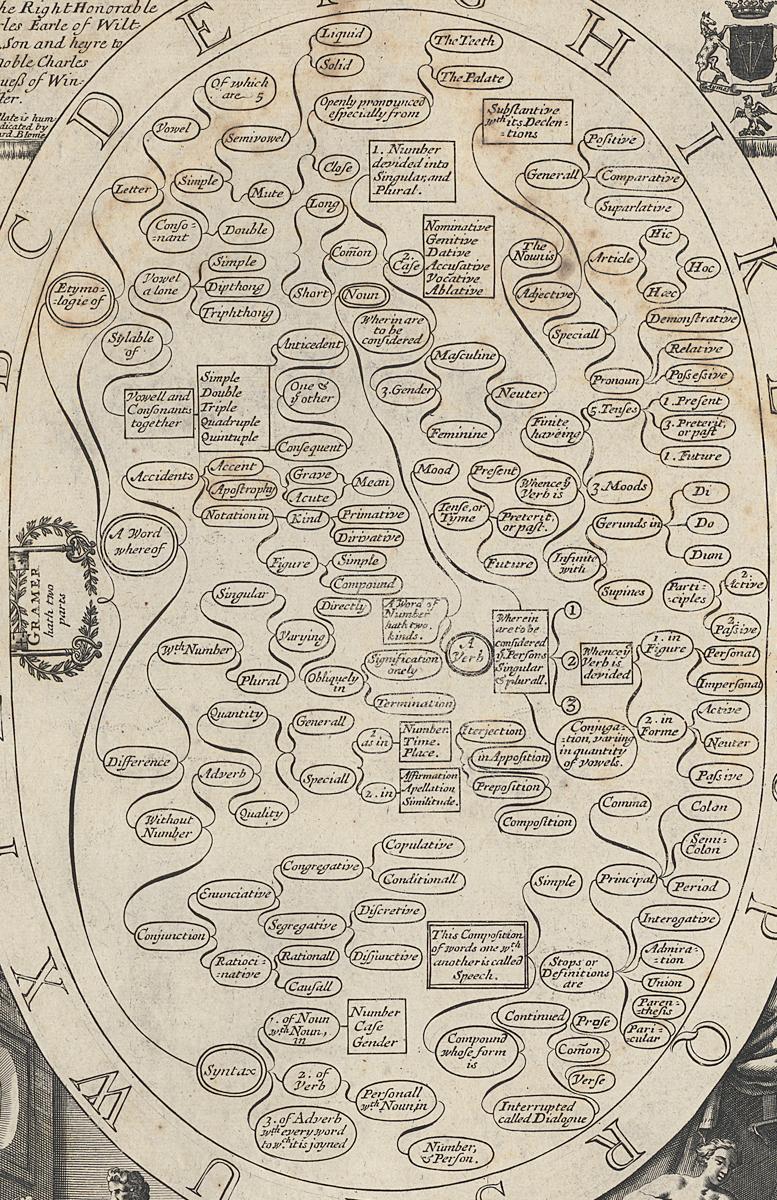 he Right Honorable
rles Earle of Wilt
Son and heyre to
noble Charles
queß of Win-
ter.
late is hum
dicated by
ard Blome
E
H
D
I
C
K
Liquid
Solid
The Teeth
The Palate
Of which
are 5
Openly pronounced
especially from
Vowel
Semivowel
Substantive
wth its Declen:
:tions
Close
1. Number
devided into
Singular, and
Plural.
Positive
Generall
Comparative
Suparlative
Letter
Simple
Mute
Long
Conso:
:nant
Double
Com̃on
2.
Case
Nominative
Genitive
Dative
Accusative
Vocative
Ablative
The
Noun is
Article
Hic
Hoc
Hæc
Etymo:
:logie of
Vowel
alone
Simple
Dipthong
Triphthong
Short
Noun
Adjective
Wherin are
to be
considered
Speciall
Demonstrative
Relative
Possessive
Pronoun
Sylable
of
Anticedent
Masculine
3. Gender
Neuter
Feminine
Vowell and
Consonants
together
Simple
Double
Triple
Quadruple
Quintuple
One &
ye other
Consequent
5. Tenses
1. Present
3. Preterit,
or past
1. Future
Finite
haveing
Accidents
Accent
Apostrophy
Grave
Acute
Mean
Mood
Present
Whence ye
Verb is
3. Moods
Tense, or
Tyme
Preterit,
or past.
Future
Gerunds in
Di
Do
Dum
Notation in
Kind
Primative
Dirivative
Figure
Simple
Compound
Infinite
with
Supines
Parti:
:ciples
2.
Active
2.
Passive
A Word
whereof
GRAMER
hath two
parts
Singular
Directly
Varying
Obliquely
in
wth Number
Plural
A Word of
Number
hath two
kinds.
Signification
onely
Termination
A
Verb
Wherein
are to be
considered
ye Persons
Singular
& plurall.
1
2
3
Whence ye
Verb is
devided
1. in
Figure
Personal
Impersonal
Conjuga:
:tion, varying
in quantity
of vowels.
2. in
Forme
Active
Neuter
Passive
Difference
Quantity
Generall
Adverb
Speciall
Quality
1
as in
Number.
Time.
Place.
2. in
Affirmation
Apellation
Similitude.
Iterjection
in Apposition
Preposition
Composition
Without
Number
Comma
Colon
Semi-
Colon
Principal
Period
Copulative
Congregative
Conditionall
Enunciative
Discretive
Segregative
Disjunctive
Conjunction
Ratioci:
:native
Rationall
Causall
Simple
This Composition
of words one wth
another is called
Speech.
Stops or
Definitions
are
Interogative
Admira:
:tion
Union
Paren:
:thesis
Pari:
:cular
Syntax
1. of Noun
wth Noun,
in
Number
Case
Gender
2. of
Verb
Personall
wth Noun in
3. of Adverb
wth every word
to wch it is joyned
Number,
& Person.
Continued
Prose
Com̃on
Verse
Compound
whose form
is
Interrupted
called Dialogue
X
W
R
Q